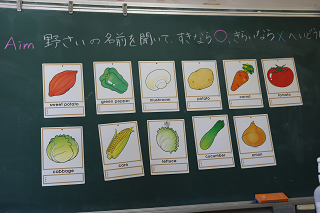 Aim 野さいの名前を聞いて、すきなら○、きらいなら×
sweet potato green pepper mushroom potato carrot tomato
cabbage corn lettuce cucumber onion